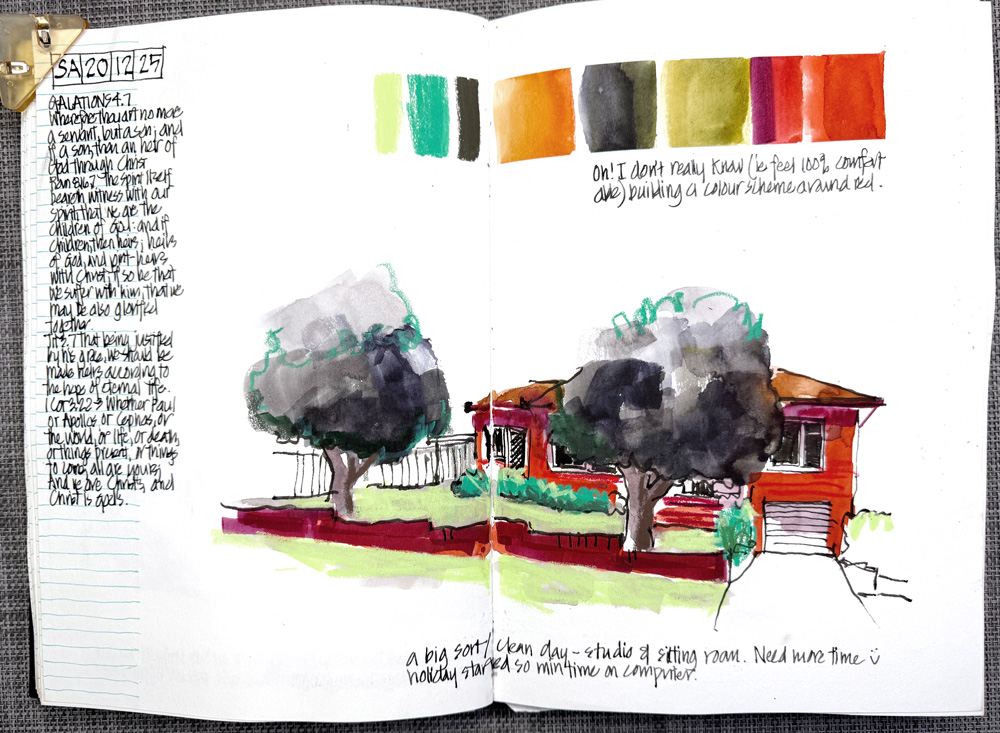 SA 20 12 25
GALATIONS 4.7
Wherefore thou art no more
a servant, but a son; and
if a son, then an heir of
God through Christ
Rom 8.16.7. The spirit itself
beareth witness with our
spirit, that we are the
children of God: and if
children, then heirs; heirs
of God, and joint-heirs
with Christ; if so be that
we suffer with him, that we
may be also glorified
together.
Tit 3.7 That being justified
by his grace, we should be
made heirs according to
the hope of eternal life.
1 Cor 3:22-3 Whether Paul
or Apollos or Cephas, or
the world, or life, or death,
or things present, or things
to come; all are yours;
And ye are Christ's; and
Christ is God's.
Oh! I don't really know (ie feel 100% comfort
able) building a colour scheme around red.
a big sort/clean day - studio & sitting room. Need more time ü
holiday started so min time on computer.